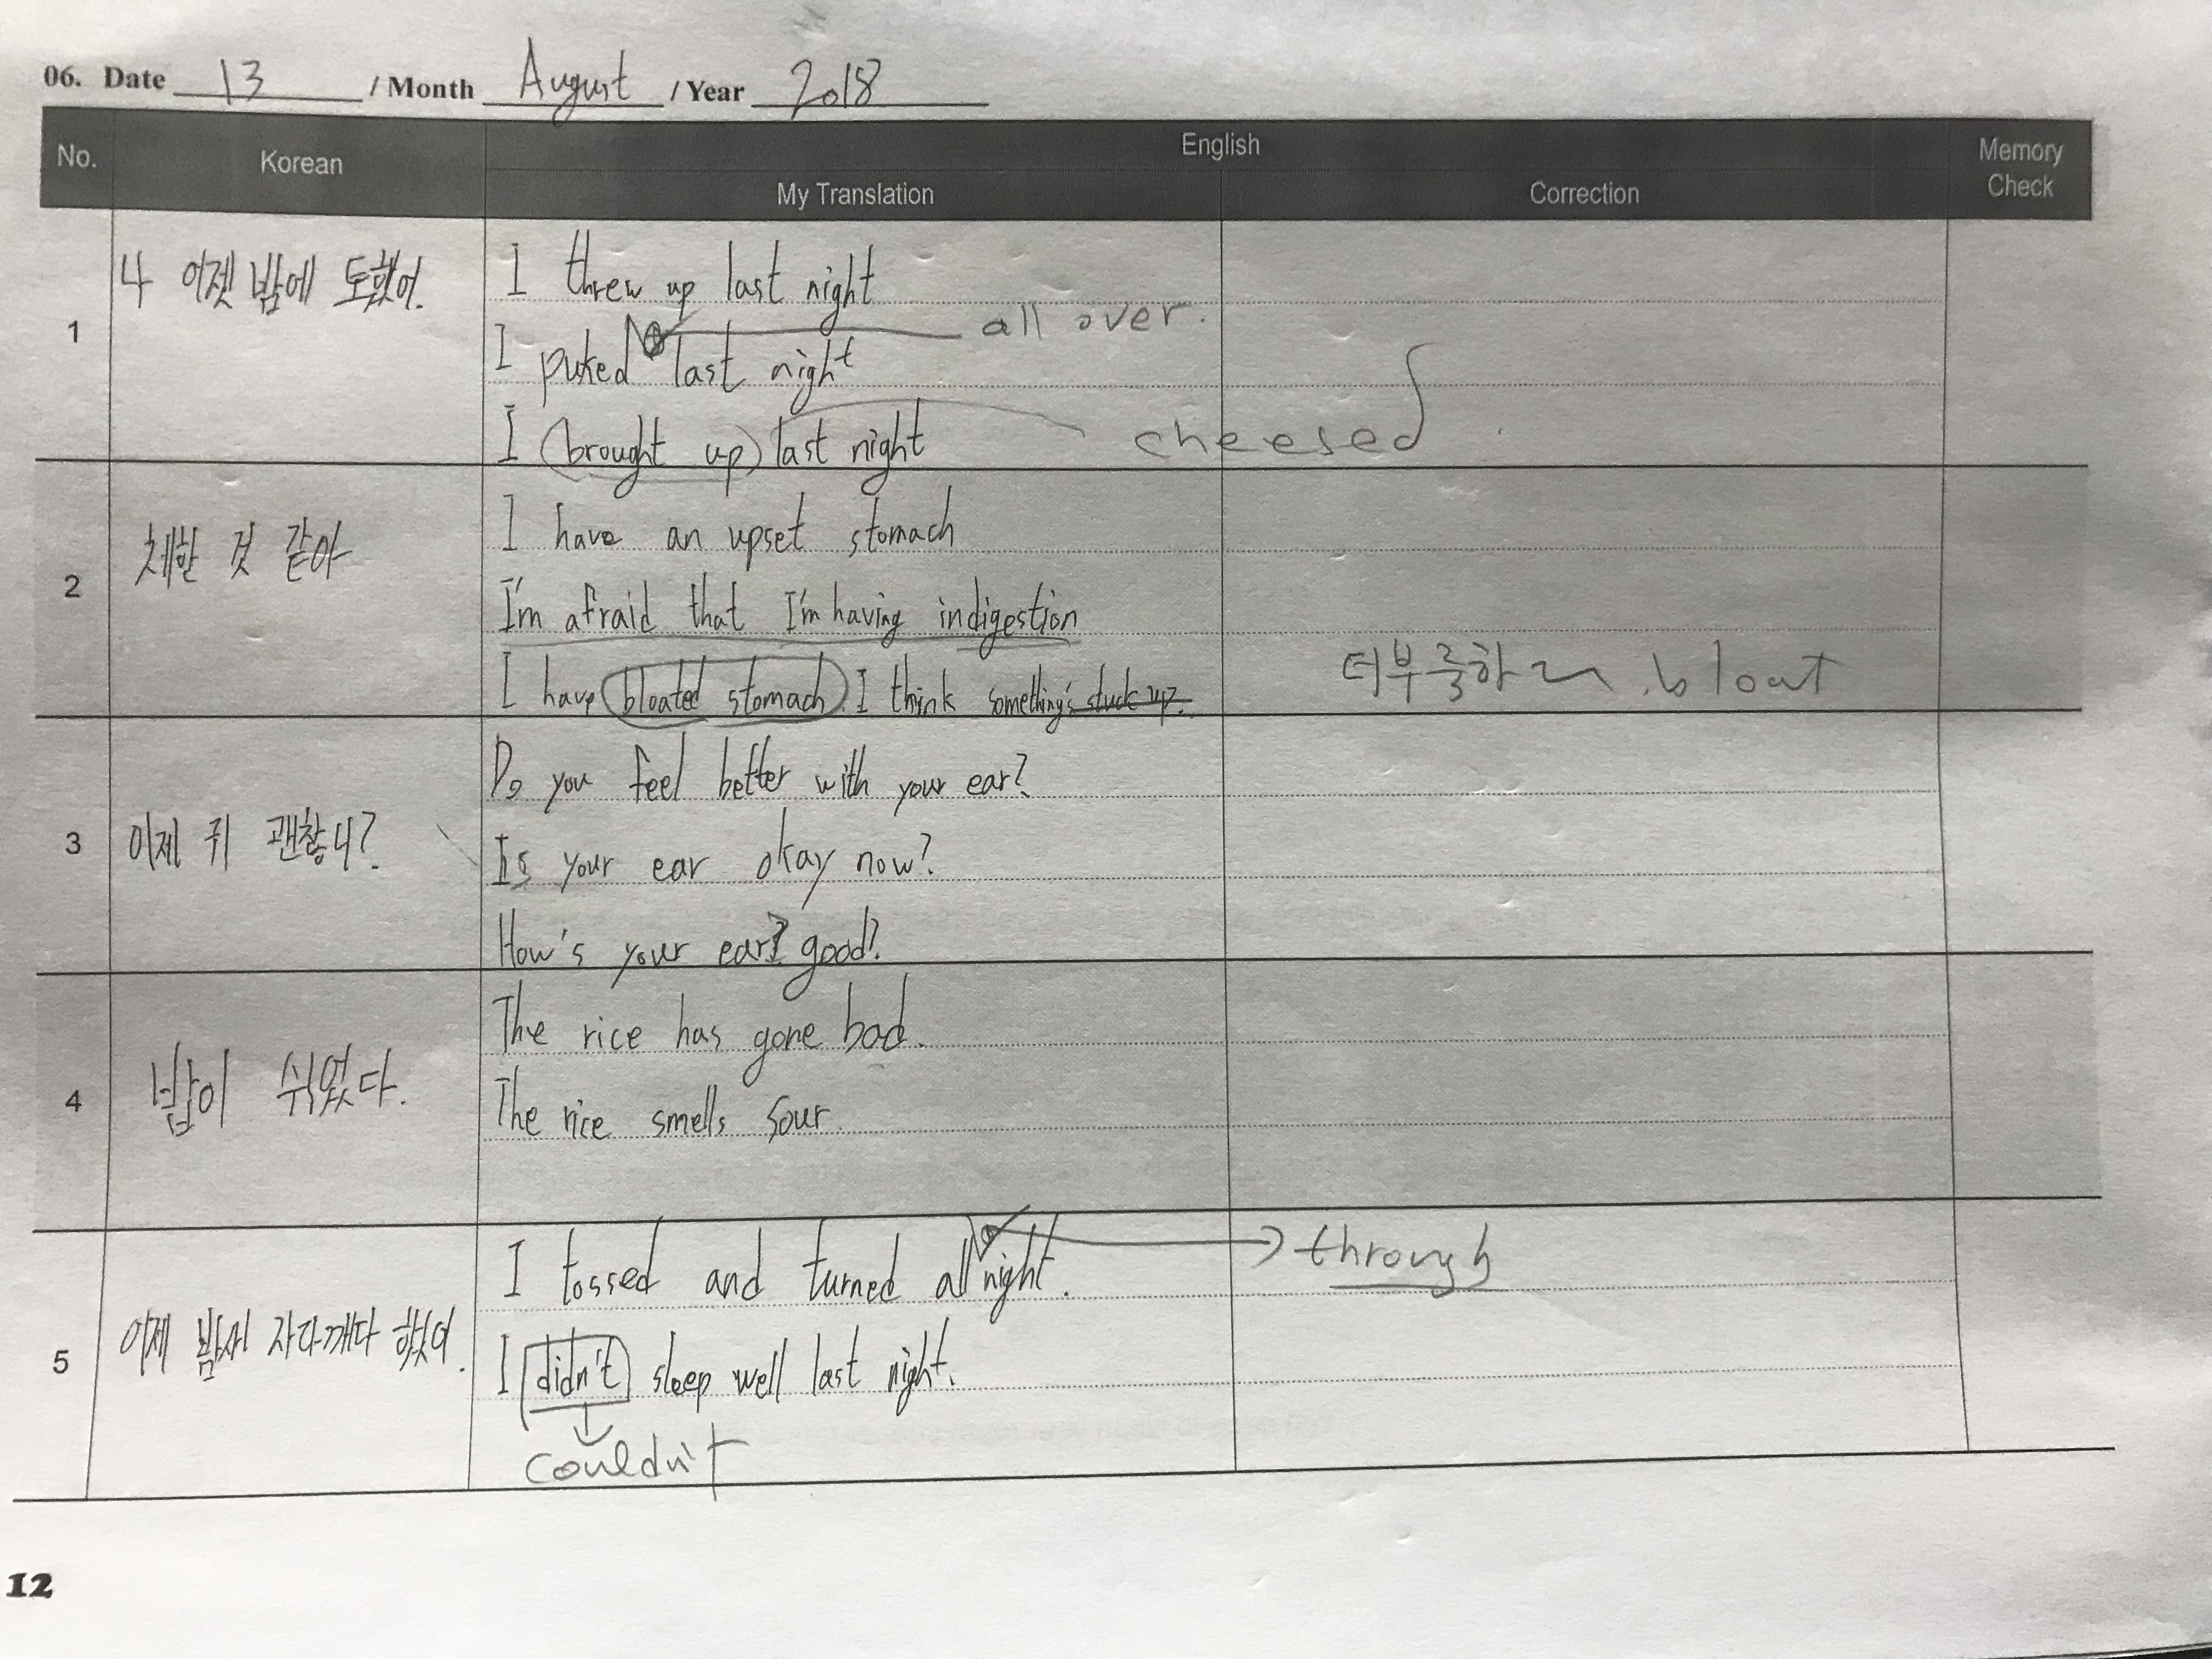 06. Date 13 / Month August / Year 2018
No. Korean English Memory Check
My Translation Correction
1 나 어젯밤에 토했어. I threw up last night
all over.
I puked last night
I (brought up) last night cheesed
2 체한 것 같아 I have an upset stomach
I'm afraid that I'm having indigestion
I have bloated stomach. I think something's stuck up. 더부룩하다 bloat
3 이제 귀 괜찮니? Do you feel better with your ear?
Is your ear okay now?
How's your ear? good?
4 밥이 쉬었다. The rice has gone bad.
The rice smells sour.
5 어제 밤새 자다깨다 했어. I tossed and turned all night. through
I didn't sleep well last night.
couldn't
12